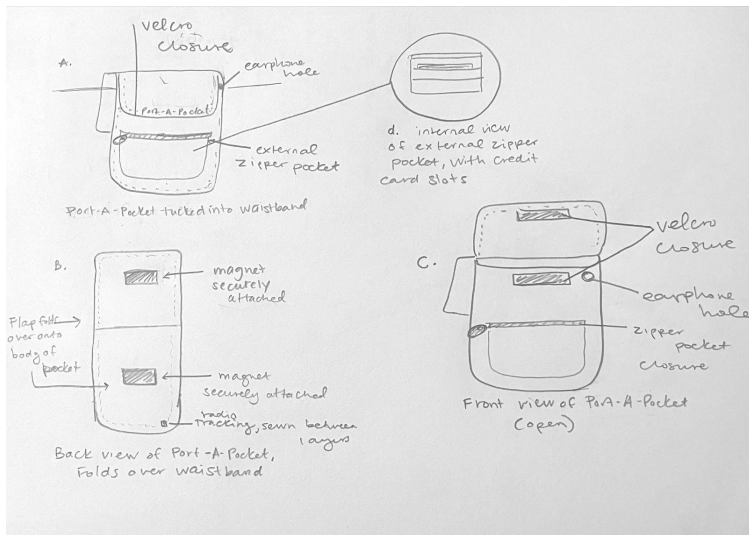 velcro
closure
A.
earphone
hole
Port-A-Pocket
external
zipper pocket
Port-A-Pocket tucked into waistband
d. internal view
of external zipper
pocket, with credit
card slots
B.
magnet
securely
attached
Flap folds
over onto
body of
pocket
magnet
securely attached
radio
tracking, sewn between
layers
Back view of Port-A-Pocket,
Folds over waistband
C.
velcro
closure
earphone
hole
zipper
pocket
closure
Front view of Port-A-Pocket
(open)